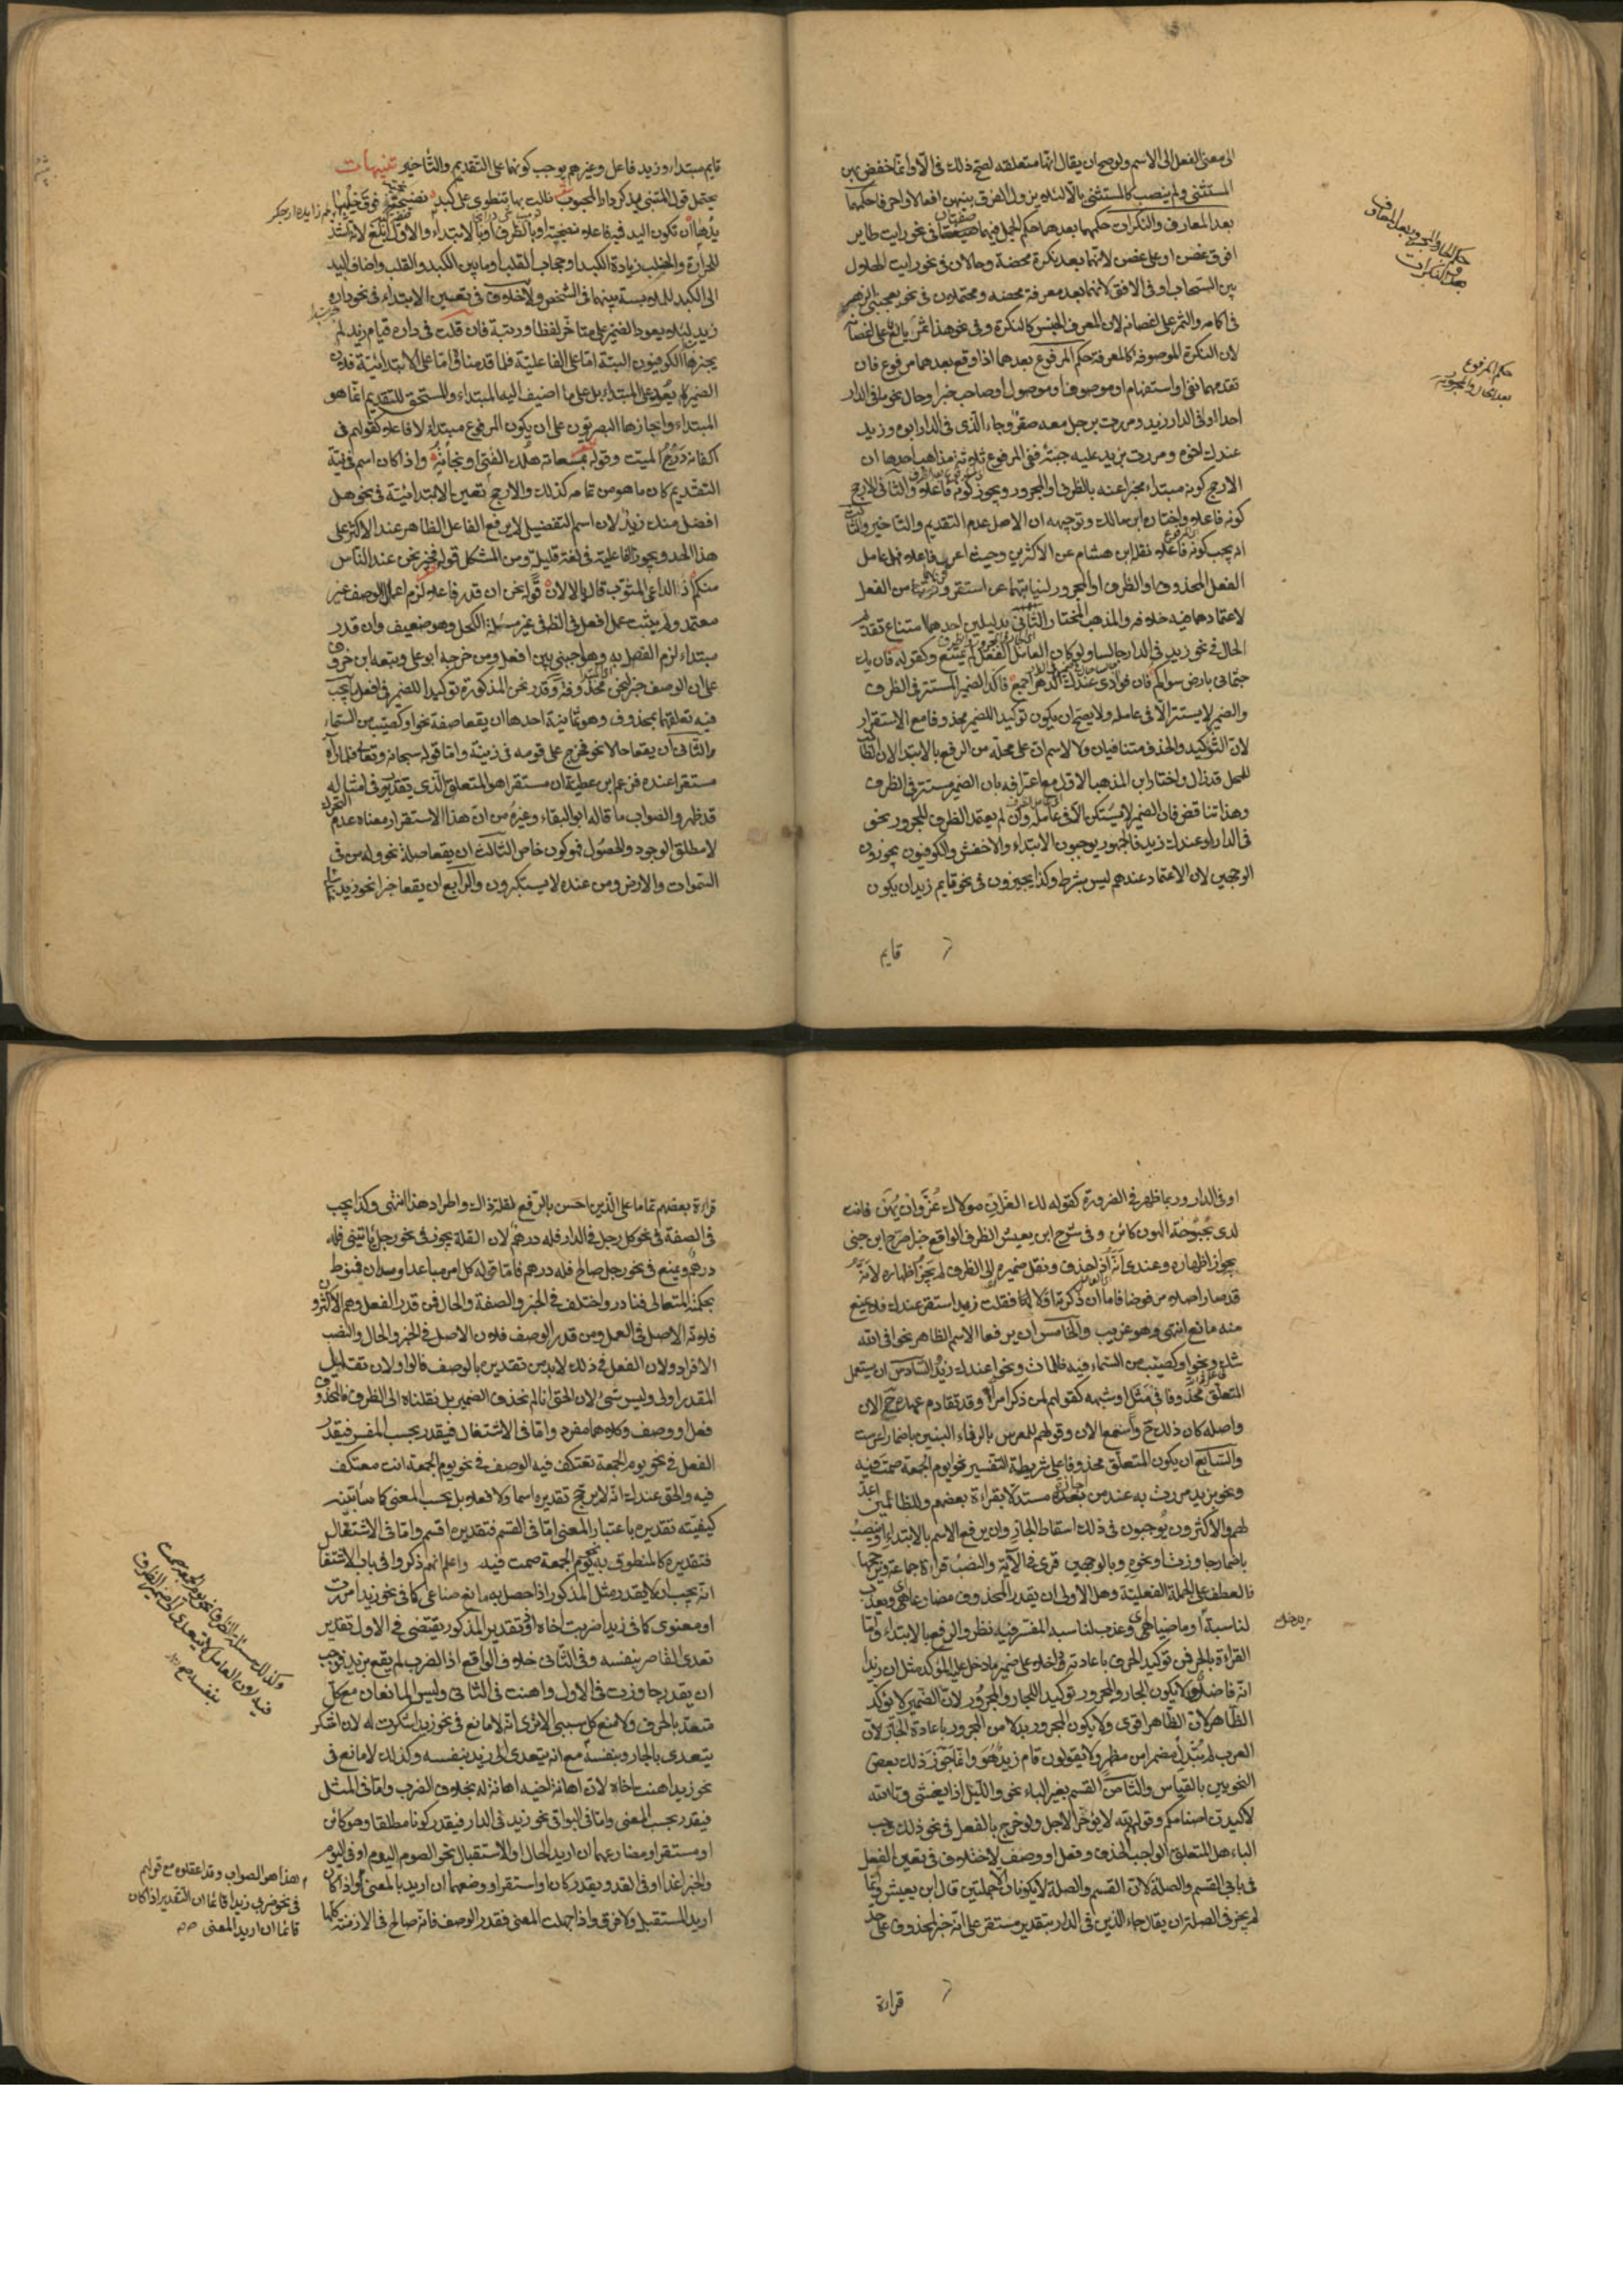 الى معنى الفعل الى الاسم ولو صح ان يقال انها متعلقه لصح ذلك فى الا وانما خفض بهن
المستثنى ولم ينصب كالمستثنى بالا لئلا يزول الفرق بينهن افعالا واحرفا حكمهما
بعد المعارف والنكرات حكمهما بعدهما حكم الجمل فهما صفتان فى نحو رايت طاير
افوق غصن او على غصن لانهما بعد نكرة محضة وحالان فى نحو رايت الهلول
بين السحاب او فى الافق لانهما بعد معرفة محضه ومحتملان فى نحو يعجبنى الزهر
فى اكامه والثمر على اغصانه لان المعرف الجنس كالنكرة وفى نحو هذا ثمر يانع على اغصانه
لان النكرة الموصوفة كالمعرفة حكم المرفوع بعدهما اذا وقع بعدهما مرفوع فان
تقدمهما نفى او استفهام او موصوف او موصول او صاحب خبر او حال نحو ما فى الدار
احد او فى الدار زيد ومررت برجل معه صقر وجاء الذى فى الدار ابوه وزيد
عندك اخوه ومررت بزيد عليه جبة ففى المرفوع ثلاثة مذاهب احدها ان
الارجح كونه مبتداء مخبرا عنه بالظرف او المجرور ويجوز كونه فاعلا والثانى الارجح
كونه فاعلا واختاره ابن مالك وتوجيهه ان الاصل عدم التقديم والتاخير والثالث
انه يجب كونه فاعلا نقله ابن هشام عن الاكثرين وحيث اعرب فاعلا فهل عامل
الفعل المحذوف او الظرف او المجرور لنيابتهما عن استقر وقربهما من الفعل
لاعتمادهما فيه خلاف والمذهب المختار الثانى بدليلين احدهما امتناع تقديم
الحال فى نحو زيد فى الدار جالسا ولو كان العامل الفعل لم يمتنع وكقوله فان يك
جثمانى بارض سواكم فان فوادى عندك الدهر اجمع فاكد الضمير المستتر فى الظرف
والضمير لا يستتر الا فى عامله ولا يصح ان يكون توكيدا للضمير محذوفا مع الاستقرار
لان التوكيد والحذف متنافيان ولا لاسم ان على محله من الرفع بالابتداء لان الطالب
للمحل قد زال واختار ابن المذهب الاول مع اعترافه بان الضمير مستتر فى الظرف
وهذا تناقض فان الضمير لا يستكن الا فى عامله وان لم يعتمد الظرف المجرور نحو
فى الدار او عندك زيد فالجمهور يوجبون الابتداء والاخفش والكوفيون يجوزون
الوجهين لان الاعتماد عندهم ليس بشرط وكذا يجيزون فى نحو قايم زيد ان يكون
قايم
حكم الجار والمجرور بعد المعارف
وبعد النكرات
حكم المرفوع
بعد الجار والمجرور
قايم مبتداء وزيد فاعل وغيرهم يوجب كونهما على التقديم والتاخير تنبيهات
يحتمل قول المتنبى يذكر دار المحبوب ظلت بها تنطوى على كبد نضيجة فوق خلبها
يدها ان تكون اليد فيه فاعله نضيجة او بالظرف او بالابتداء والاول ابلغ لانه اشد
للحرارة والخلب زيادة الكبد او حجاب القلب او ما بين الكبد والقلب واضاف اليد
الى الكبد للملابسة بينهما فى الشخص ولا خلاف فى تعيين الابتداء فى نحو داره
زيد لئلا يعود الضمير على متاخر لفظا ورتبة فان قلت فى داره قيام زيد لم
يجزها الكوفيون البتة اما على الفاعلية فلما قدمنا واما على الابتدائية فلان
الضمير لم يعد على المبتداء بل على ما اضيف اليه المبتداء والمستحق للتقديم انما هو
المبتداء واجازها البصريون على ان يكون المرفوع مبتداء لا فاعلا كقولهم فى
اكفانه درج الميت وقوله بمسعاته هلك الفتى او نجاته واذا كان اسم فى نية
التقديم كان ما هو من تمامه كذلك والارجح تعين الابتدائية فى نحو هل
افضل منك زيد لان اسم التفضيل لا يرفع الفاعل الظاهر عند الاكثر على
هذا الحد ويجوز الفاعلية فى لغة قليلة ومن المشكل قوله فخير نحن عند الناس
منكم اذ الداعى المثوب قال يالا لان قوله نحن ان قدر فاعلا لزم اعمال الوصف غير
معتمد ولم يثبت عمل افعل فى الظاهر فى غير مسئلة الكحل وهو ضعيف وان قدر
مبتداء لزم الفصل به وهو اجنبى بين افعل ومن خرجه ابو على وتبعه ابن خروف
على ان الوصف خبر لنحن محذوفة وقدر نحن المذكورة توكيدا للضمير فى افعل يجب
فيه تعلقهما بمحذوف وهو ثمانية احدها ان يقعا صفة نحو او كصيب من السماء
والثانى ان يقعا حالا نحو فخرج على قومه فى زينته واما قوله سبحانه وتعالى فلما رآه
مستقرا عنده فزعم ابن عطية ان مستقرا هو المتعلق الذى يقدر فى امثاله
قد ظهر والصواب ما قاله ابو البقاء وغيره من ان هذا الاستقرار معناه عدم التحرك
لا مطلق الوجود والحصول فهو كون خاص الثالث ان يقعا صلة نحو وله من فى
السموات والارض ومن عنده لا يستكبرون والرابع ان يقعا خبرا نحو زيد عندك
او فى الدار وربما ظهر فى الضرورة كقوله لك العز ان مولاك عز وان يهن فانت
لدى بحبوحة الهون كائن وفى شرح ابن يعيش الظرف الواقع خبرا صرح ابن جنى
بجواز اظهاره وعندى انه اذا حذف ونقل ضميره الى الظرف لم يجز اظهاره لانه
قد صار اصلا مرفوضا فاما ان ذكرته اولا فقلت زيد استقر عندك فلا يمنع
منه مانع انتهى وهو غريب والخامس ان يرفعا الاسم الظاهر نحو افى الله
شك ونحو او كصيب من السماء فيه ظلمات ونحو اعندك زيد السادس ان يستعمل
المتعلق محذوفا فى مثل او شبهه كقولهم لمن ذكر امرا وقد تقادم عهده ح الان
واصله كان ذلك ح واسمع الان وقولهم للمعرس بالرفاء والبنين باضمار اعرست
والسابع ان يكون المتعلق محذوفا على شريطة التفسير نحو ايوم الجمعة صمت فيه
ونحو بزيد مررت به عند من اجازه مستدلا بقراءة بعضهم وللظالمين اعد
لهم والاكثرون يوجبون فى ذلك اسقاط الجار وان يرفع الاسم بالابتداء او ينصب
باضمار جاوزت او نحوه وبالوجهين قرى فى الآية والنصب قراءة جماعة وترجحها
العطف على الجملة الفعلية وهل الاولى ان يقدر المحذوف مضارعا اى ويعذب
لمناسبة او ماضيا اى وعذب لمناسبة المفسر فيه نظر والرفع بالابتداء واما
القراءة بالجر فمن توكيد الحرف باعادته داخلا على ضمير ما دخل عليه المؤكد مثل ان زيدا
انه فاضل ولا يكون الجار والمجرور توكيدا للجار والمجرور لان الضمير لا يؤكد
الظاهر لان الظاهر اقوى ولا يكون المجرور بدلا من المجرور باعادة الجار لان
العرب لم تبدل مضمرا من مظهر ولا يقولون قام زيد هو وانما جوز ذلك بعض
النحويين بالقياس والثامن القسم بغير الباء نحو والليل اذا يغشى وتالله
لاكيدن اصنامكم وقولهم لله لا يؤخر الاجل ولو خرج بالفعل فى نحو ذلك وجب
الباء هل المتعلق الواجب الحذف فعل او وصف لا خلاف فى تعين الفعل
فى بابى القسم والصلة لان القسم والصلة لا يكونان الا جملتين قال ابن يعيش وانما
لم يجز فى الصلة ان يقال جاء الذين فى الدار بتقدير مستقر على انه خبر لمحذوف على حد
قراءة
قراءة بعضهم تماما على الذين احسن بالرفع لقلة ذاك واطراد هذا انتهى وكذا يجب
فى الصفة فى نحو كل رجل فى الدار فله درهم لان الفاء يجوز فى نحو رجل ياتينى فله
درهم ويمتنع فى نحو رجل صالح فله درهم فاما قوله كل امر مباعد او مدان فمنوط
بحكمة المتعالى فنادر واختلف فى الخبر والصفة والحال فمن قدر الفعل وهم الاكثرون
فلانه الاصل فى العمل ومن قدر الوصف فلان الاصل فى الخبر والحال والنصب
الافراد ولان الفعل فى ذلك لا بد من تقديره بالوصف قالوا ولان تقليل
المقدر اولى وليس بشئ لان الحق انا لم نحذف الضمير بل نقلناه الى الظرف فالمحذوف
فعل او وصف وكلاهما مفرد واما فى الاشتغال فيقدر بحسب المفسر فيقدر
الفعل فى نحو يوم الجمعة تعتكف فيه والوصف فى نحو يوم الجمعة انت معتكف
فيه والحق عندى انه لا يرجح تقديره اسما ولا فعلا بل بحسب المعنى كما سابينه
كيفية تقديره باعتبار المعنى اما فى القسم فتقديره اقسم واما فى الاشتغال
فتقديره كالمنطوق به نحو يوم الجمعة صمت فيه واعلم انهم ذكروا فى باب الاشتغال
انه يجب ان لا يقدر مثل المذكور اذا حصل به مانع صناعى كما فى نحو زيدا مررت
او معنوى كما فى زيدا ضربت اخاه اذ تقدير المذكور يقتضى فى الاول تقدير
تعدى القاصر بنفسه وفى الثانى خلاف الواقع اذ الضرب لم يقع بزيد فوجب
ان يقدر جاوزت فى الاول واهنت فى الثانى وليس المانعان مع كل
متعد بالحرف ولا مع كل سببى الا ترى انه لا مانع فى نحو زيدا شكرت له لان شكر
يتعدى بالجار وبنفسه مع انه يتعدى الى زيد بنفسه وكذلك لا مانع فى
نحو زيدا اهنت اخاه لان اهانة اخيه اهانة له بخلاف الضرب واما فى المثل
فيقدر بحسب المعنى واما فى البواقى نحو زيد فى الدار فيقدر كونا مطلقا وهو كائن
او مستقر او مضارعهما ان اريد الحال او الاستقبال نحو الصوم اليوم او فى اليوم
والخبر غدا او فى الغد ويقدر كان او استقر او وصفهما ان اريد بالمعنى واذا كان
اريد المستقبل ولا فرق واذا جهلت المعنى فقدر الوصف فانه صالح فى الازمنة كلها
وكذلك مسئلة الظرف نحو يوم الجمعة صمت
فيه لان العامل لا يتعدى الى ضمير الظرف
بنفسه مع
هذا هو الصواب وقد اغفلوه مع قولهم
فى نحو ضربى زيدا قائما ان التقدير اذا كان
قائما ان اريد المعنى